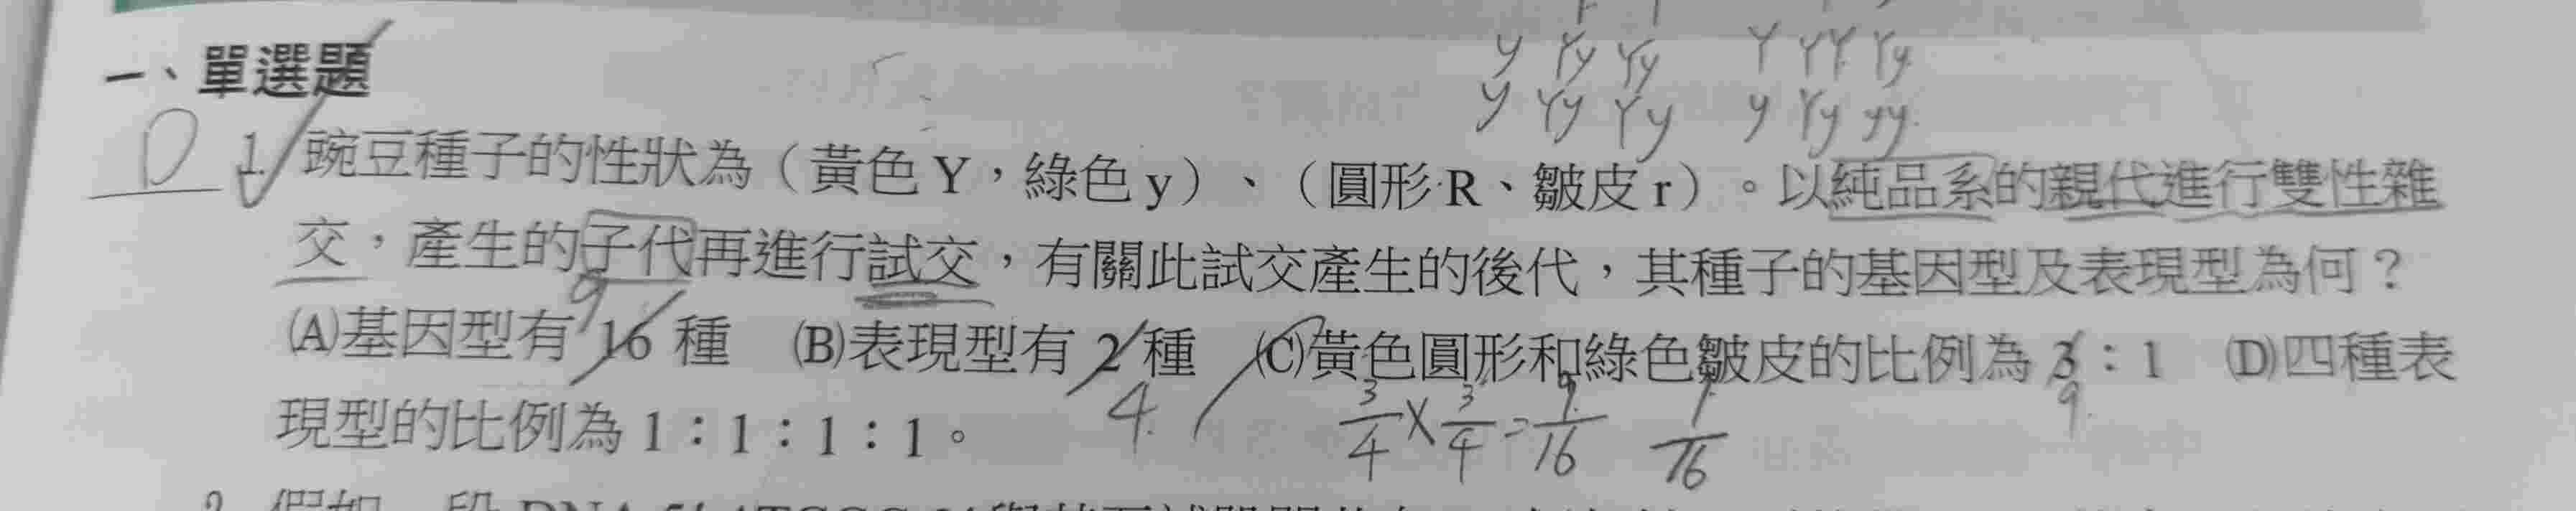 y Yy Yy Y YY Yy
一、單選題
y Yy Yy y Yy yy
D 1. 豌豆種子的性狀為（黃色 Y，綠色 y）、（圓形 R、皺皮 r）。以純品系的親代進行雙性雜
交，產生的子代再進行試交，有關此試交產生的後代，其種子的基因型及表現型為何？
9
(A)基因型有 16 種 (B)表現型有 2 種 (C)黃色圓形和綠色皺皮的比例為 3：1 (D)四種表
4 3/4 × 3/4 = 9/16 1/16 9
現型的比例為 1：1：1：1。
2. 假如一段 DNA